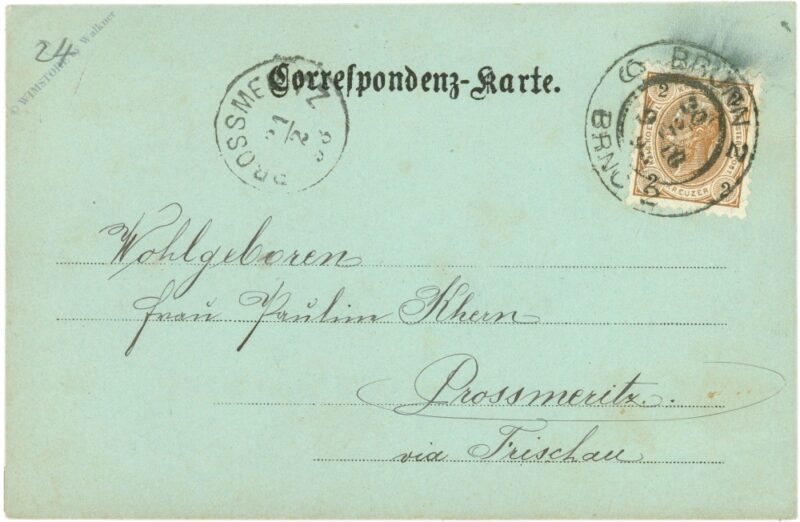 24
© WIMSTORE by Walkner
Correspondenz-Karte.
PROSSMERITZ
21/2
98
BRÜNN 2
BRNO 2
2 2
KREUZER
2 2
Wohlgeboren
Frau Paulin Khern
Prossmeritz.
via Frischau